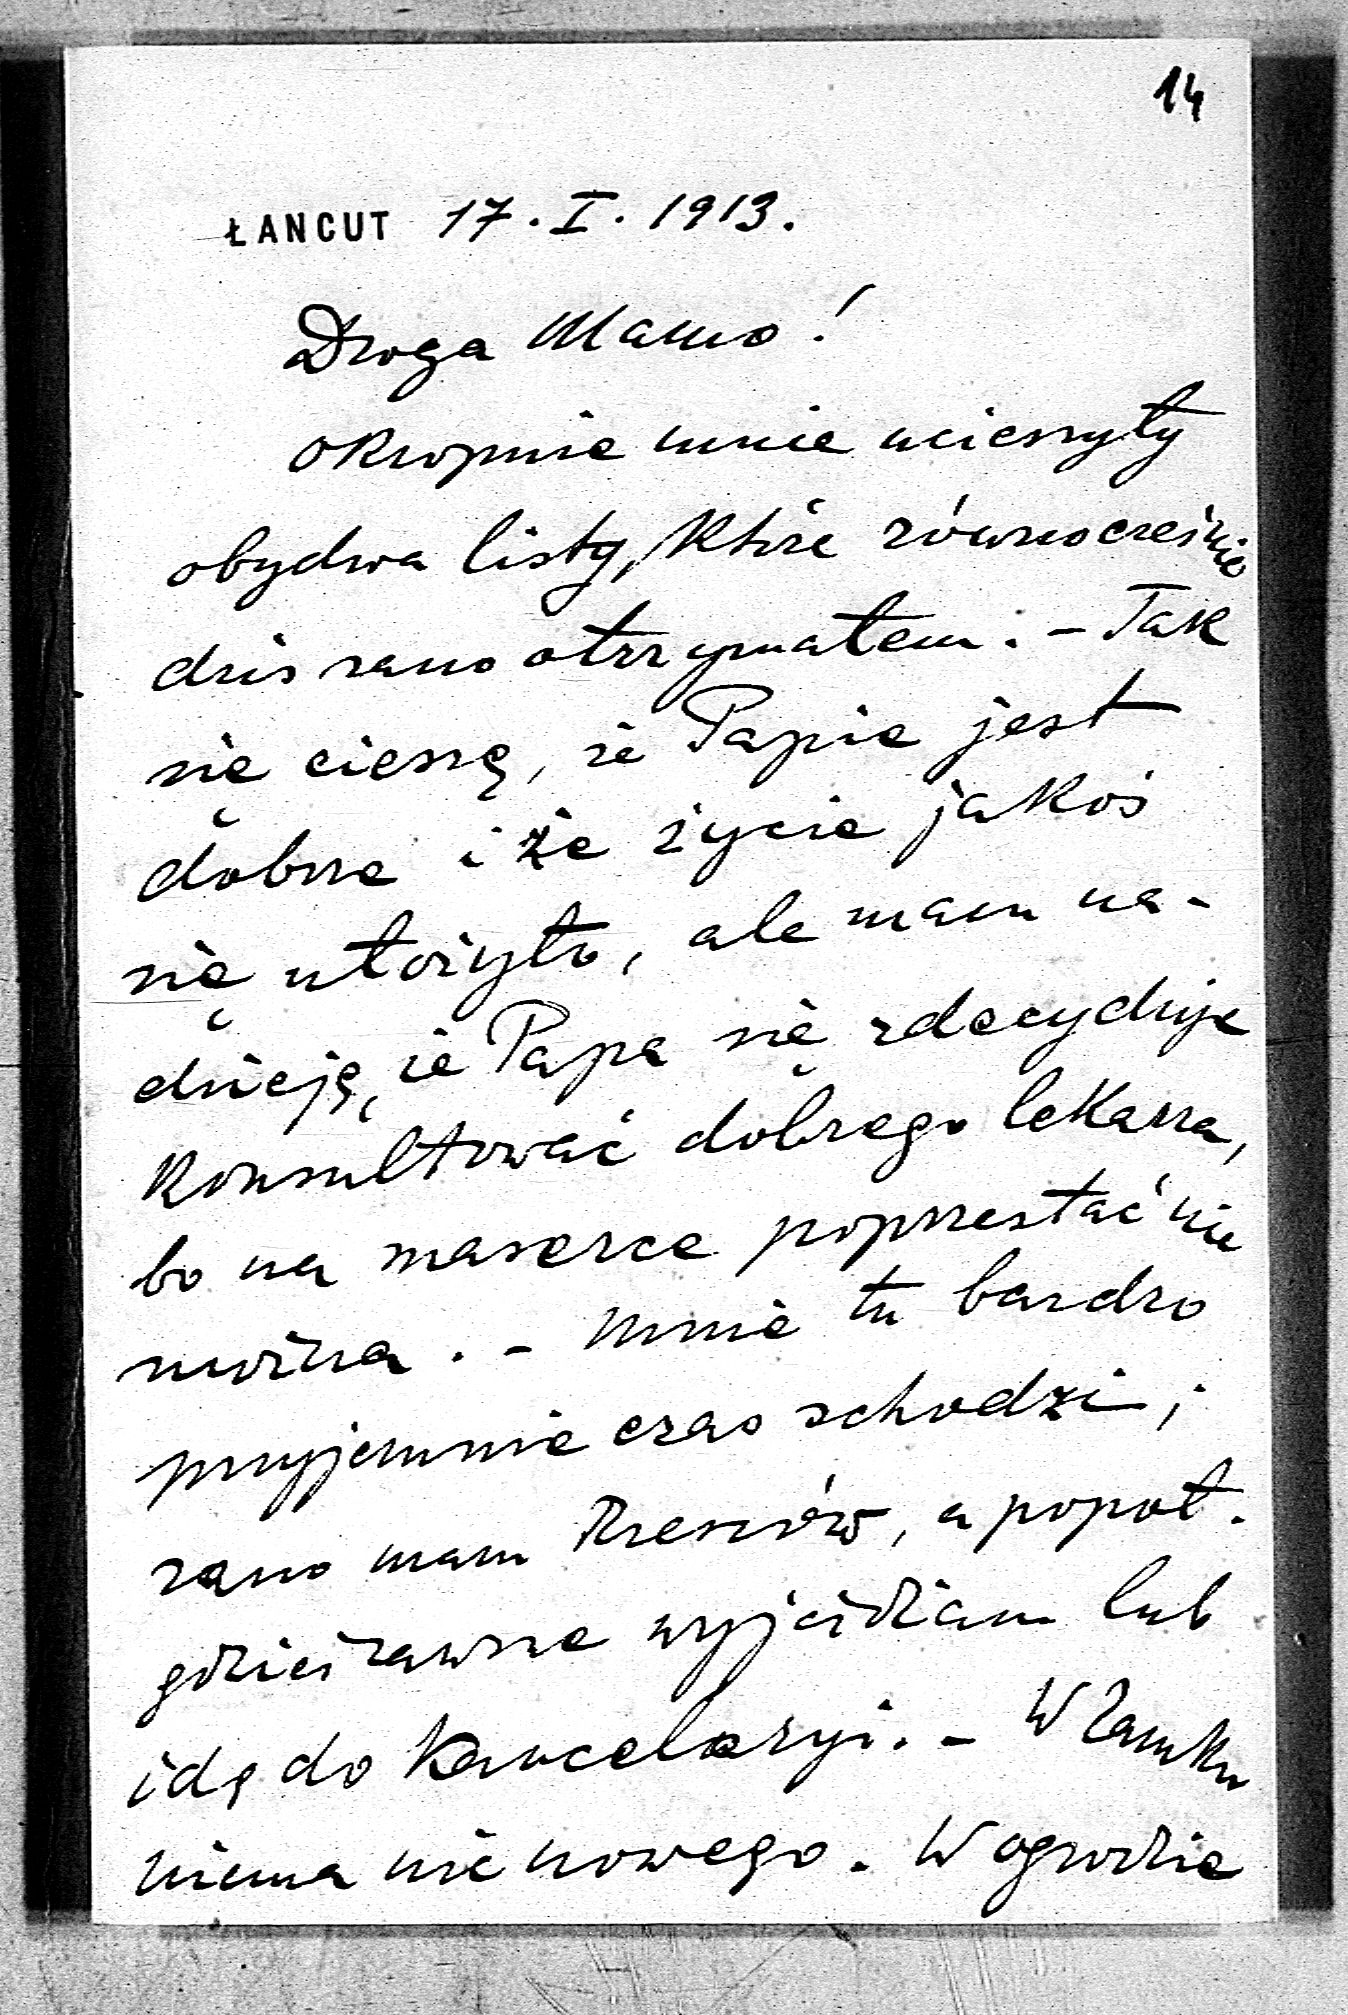 14
ŁANCUT 17. I. 1913.
Droga Mamo!
okropnie mnie ucieszyły
obydwa listy, które równocześnie
dziś rano otrzymałem. – Tak
się cieszę, że Papie jest
dobrze i że życie jakoś
się ułożyło, ale mam na-
dzieję, że Papa się zdecyduje
konsultować dobrego lekarza,
bo na maserce poprzestać nie
można. – Mnie tu bardzo
przyjemnie czas schodzi;
rano mam Rzeszów, a popoł.
gdzieś zawsze wyjeżdżam lub
idę do Kancelaryi. – W Zamku
niema nic nowego. W ogrodzie